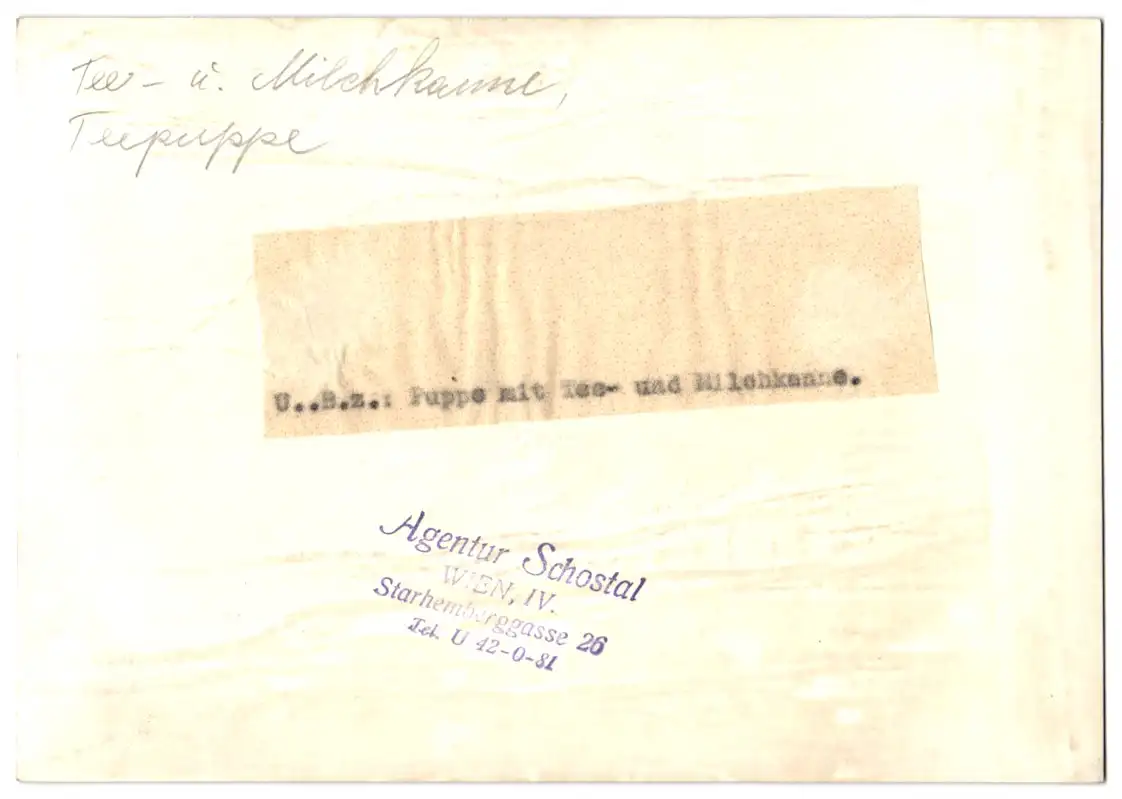 Tee- u. Milchkanne,
Teepuppe
U..B.z.: Puppe mit Tee- und Milchkanne.
Agentur Schostal
WIEN, IV.
Starhemberggasse 26
Tel. U 42-0-81